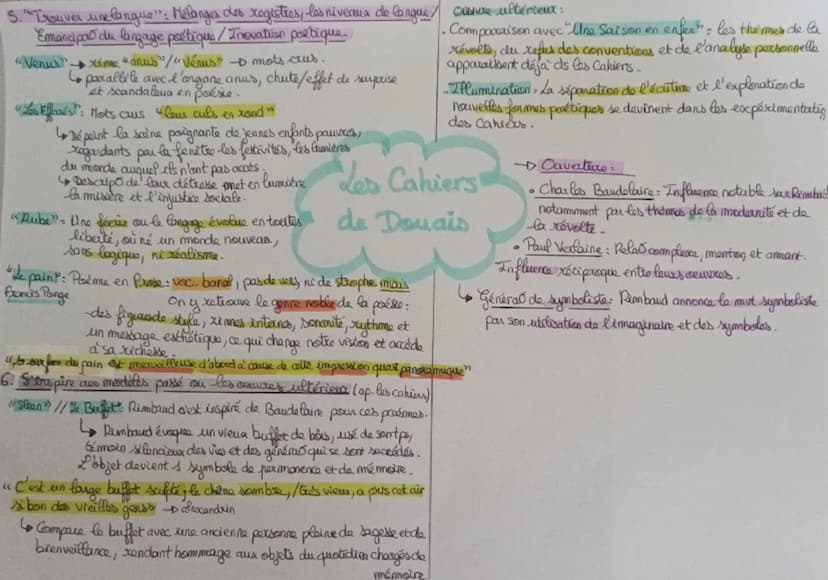 5. "Trouver une langue": Mélanges des registres, les niveaux de langue/
Émancipaõ du langage poétique / Inovation poétique
"Vénus" → rime "anus"/"Vénus" → mots crus.
↳ parallèle avec l'organe anus, chute/effet de surprise
et scandaleux en poésie.
"Les Effarés": Mots crus "leurs culs en rond"
↳ Dépeint la scène poignante de jeunes enfants pauvres,
regardants par la fenêtre les festivités, les lumières
du monde auquel ils n'ont pas accès.
↳ Descripõ de leur détresse met en lumière
la misère et l'injustice sociale.
"Aube" = Une féérie où le langage évolue en toutes
liberté, où né un monde nouveau,
sans logique, ni réalisme.
"Le pain": Poème en Prose: voc. banal, pas de vers, ni de strophe mais
Francis Ponge
On y retrouve le genre noble de la poésie:
- des figures de style, rimes internes, sonorité, rythme et
un message esthétique, ce qui change notre vision et accède
à sa richesse.
"la surface du pain est merveilleuse d'abord à cause de cette impression quasi panoramique"
6) S'inspire des modèles passé ou les oeuvres ultérieur (ap. les cahiers)
"Spleen" // "Le Buffet": Rimbaud s'est inspiré de Baudelaire pour ces poèmes.
↳ Rimbaud évoque un vieux buffet de bois, usé de son tps,
témoin silencieux des vies et des généraõ qui se sont succédés.
L'objet devient 1 symbole de permanence et de mémoire.
"C'est un large buffet sculpté; le chêne sombre, / Très vieux, a pris cet air
si bon des vieilles gens" → alexandrin
↳ Compare le buffet avec une ancienne personne pleine de sagesse et de
bienveillance, rendant hommage aux objets du quotidien chargés de
mémoire
Les Cahiers
de Douais
oeuvre ultérieur:
. Comparaison avec "Une Saison en enfer" = les thèmes de la
révolte, du refus des conventions et de l'analyse personnelle
apparaissent déjà ds les Cahiers.
. Illumination: La séparation de l'écriture et l'exploration de
nouvelles formes poétiques se devinent dans les expérimentations
des Cahiers.
→ Ouverture:
• Charles Baudelaire: Influence notable sur Rimbaud
notamment par les thèmes de la modernité et de
la révolte.
• Paul Verlaine: Relaõ complexe, mentor et amant.
Influence réciproque entre leurs oeuvres.
↳ Généraõ de symboliste: Rimbaud annonce le mvt symboliste
par son utilisation de l'imaginaire et des symboles.